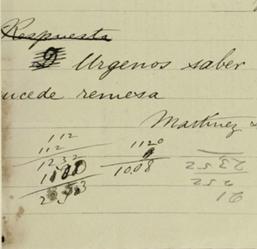 Respuesta
Urgenos saber
ucede remesa
Martinez
112
112
1232
1120
1008
2352
252
21